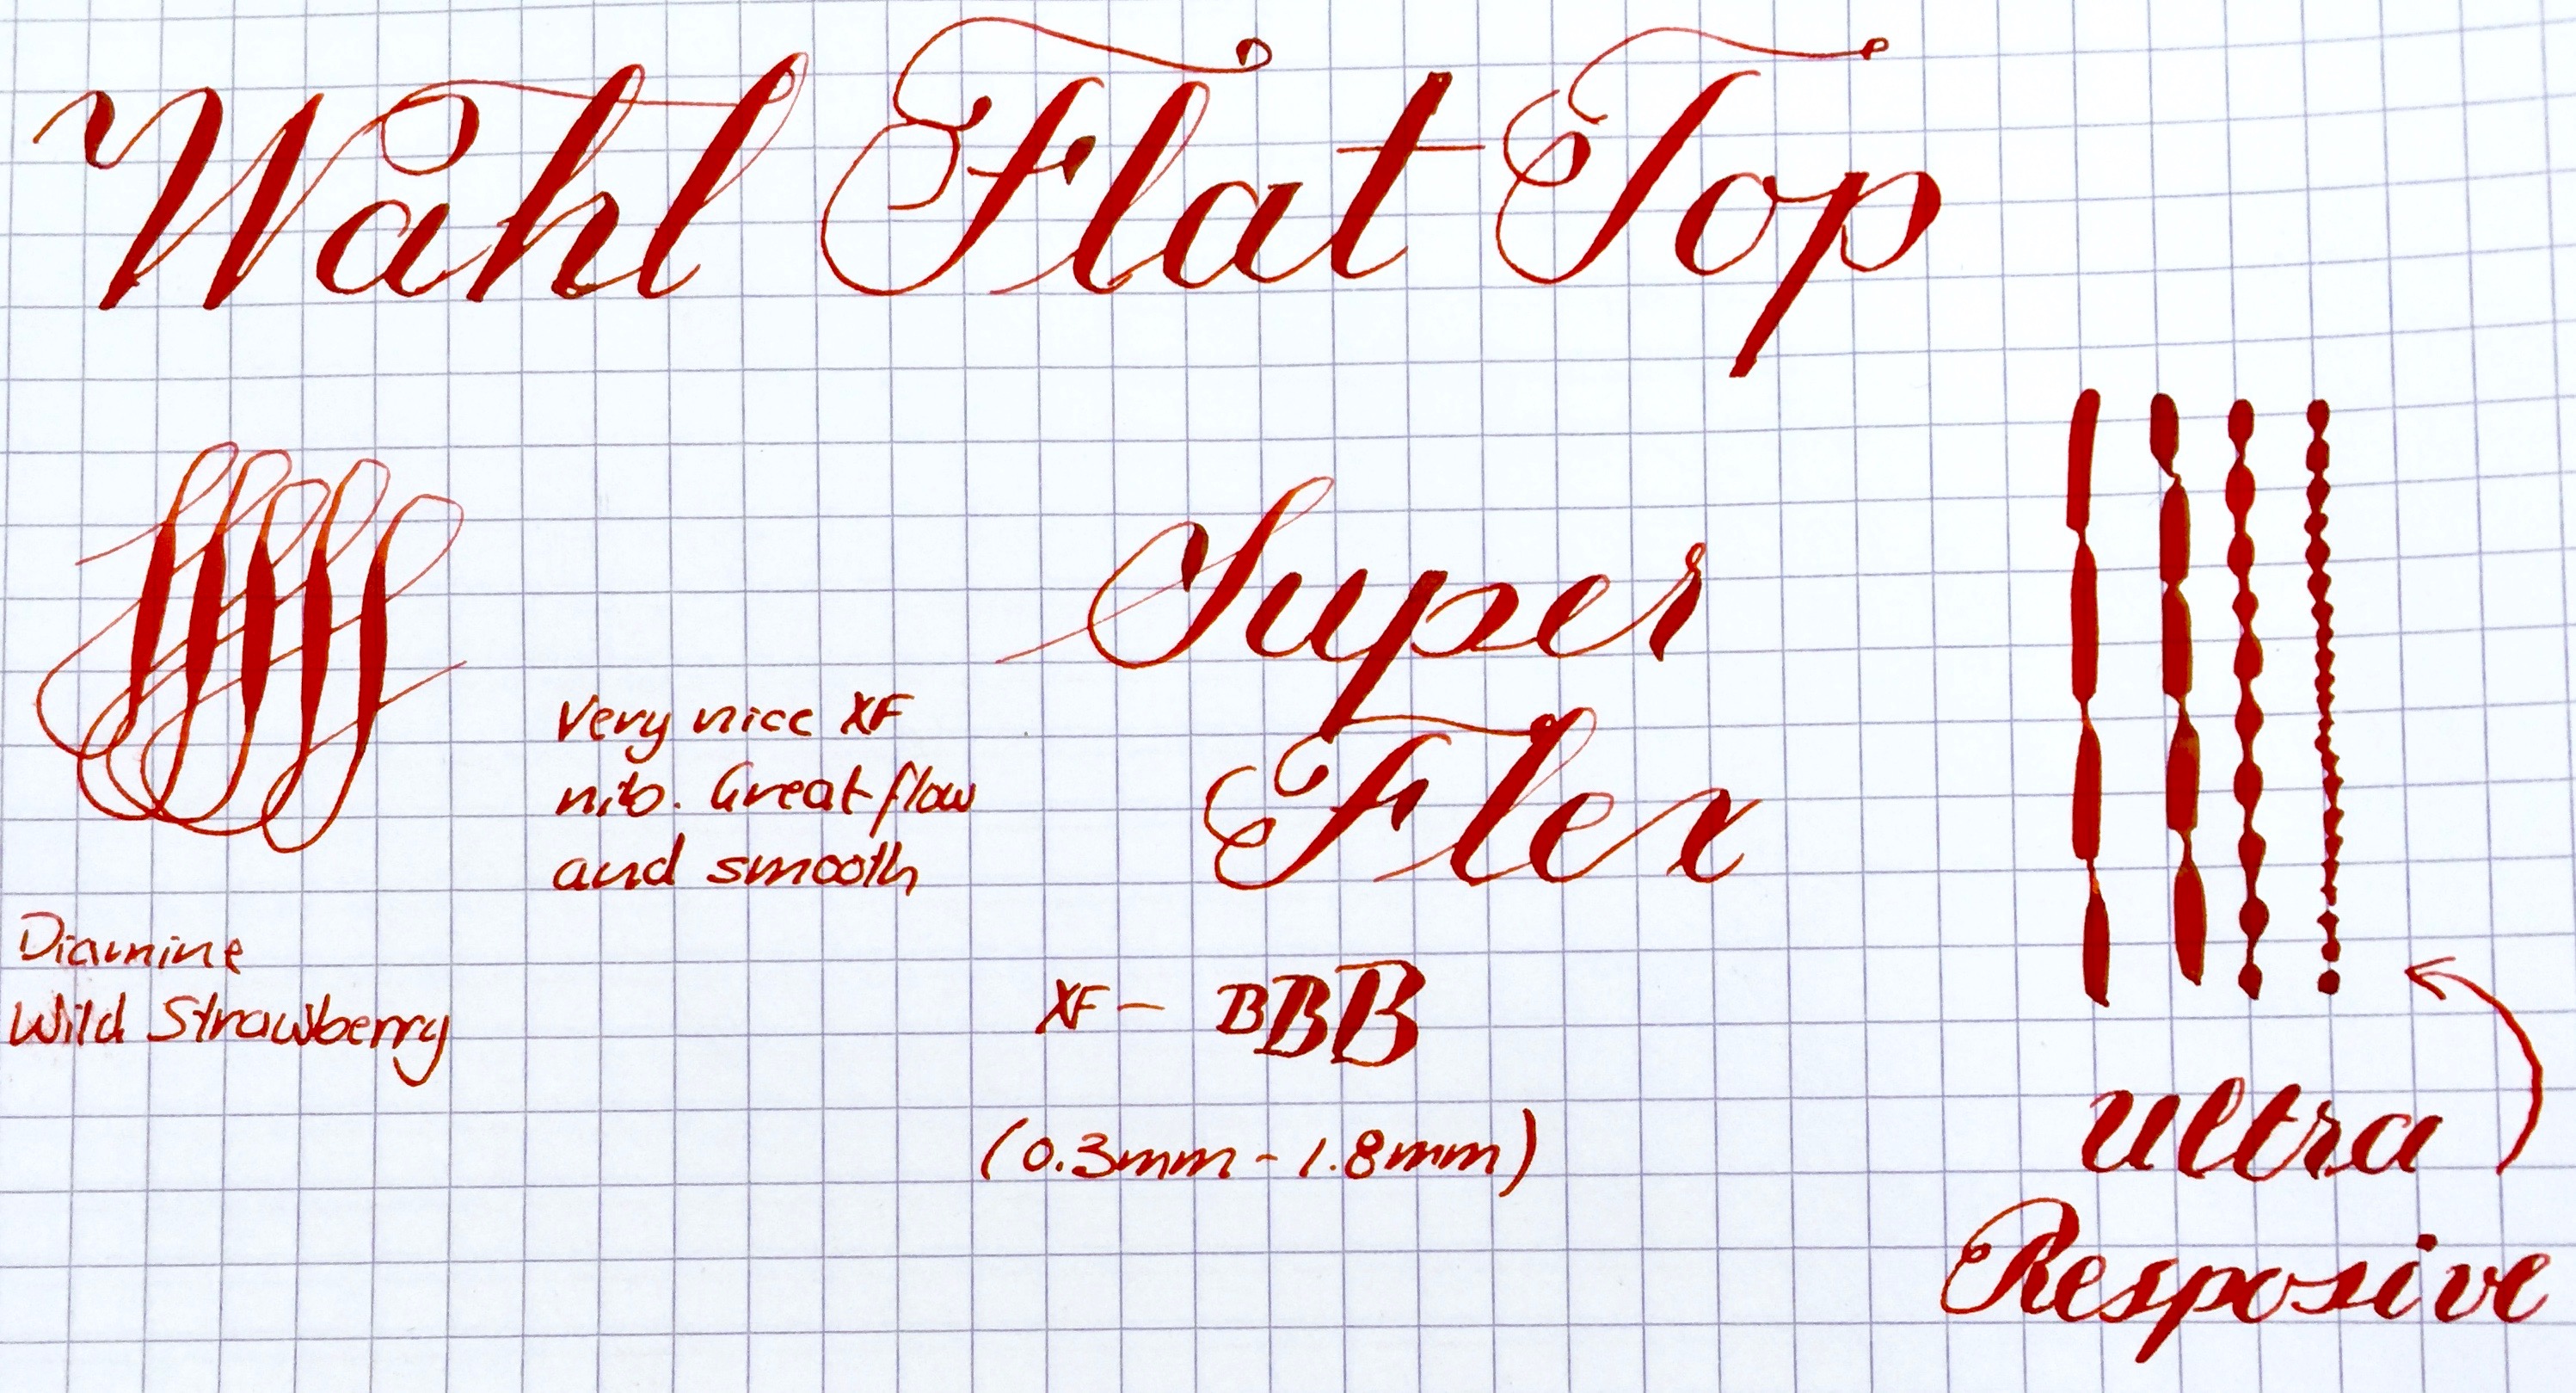 Wahl Flat Top
Super
Flex
Very nice XF
nib. Great flow
and smooth
Diamine
Wild Strawberry
XF - BBB
(0.3mm - 1.8mm)
Ultra
Resposive